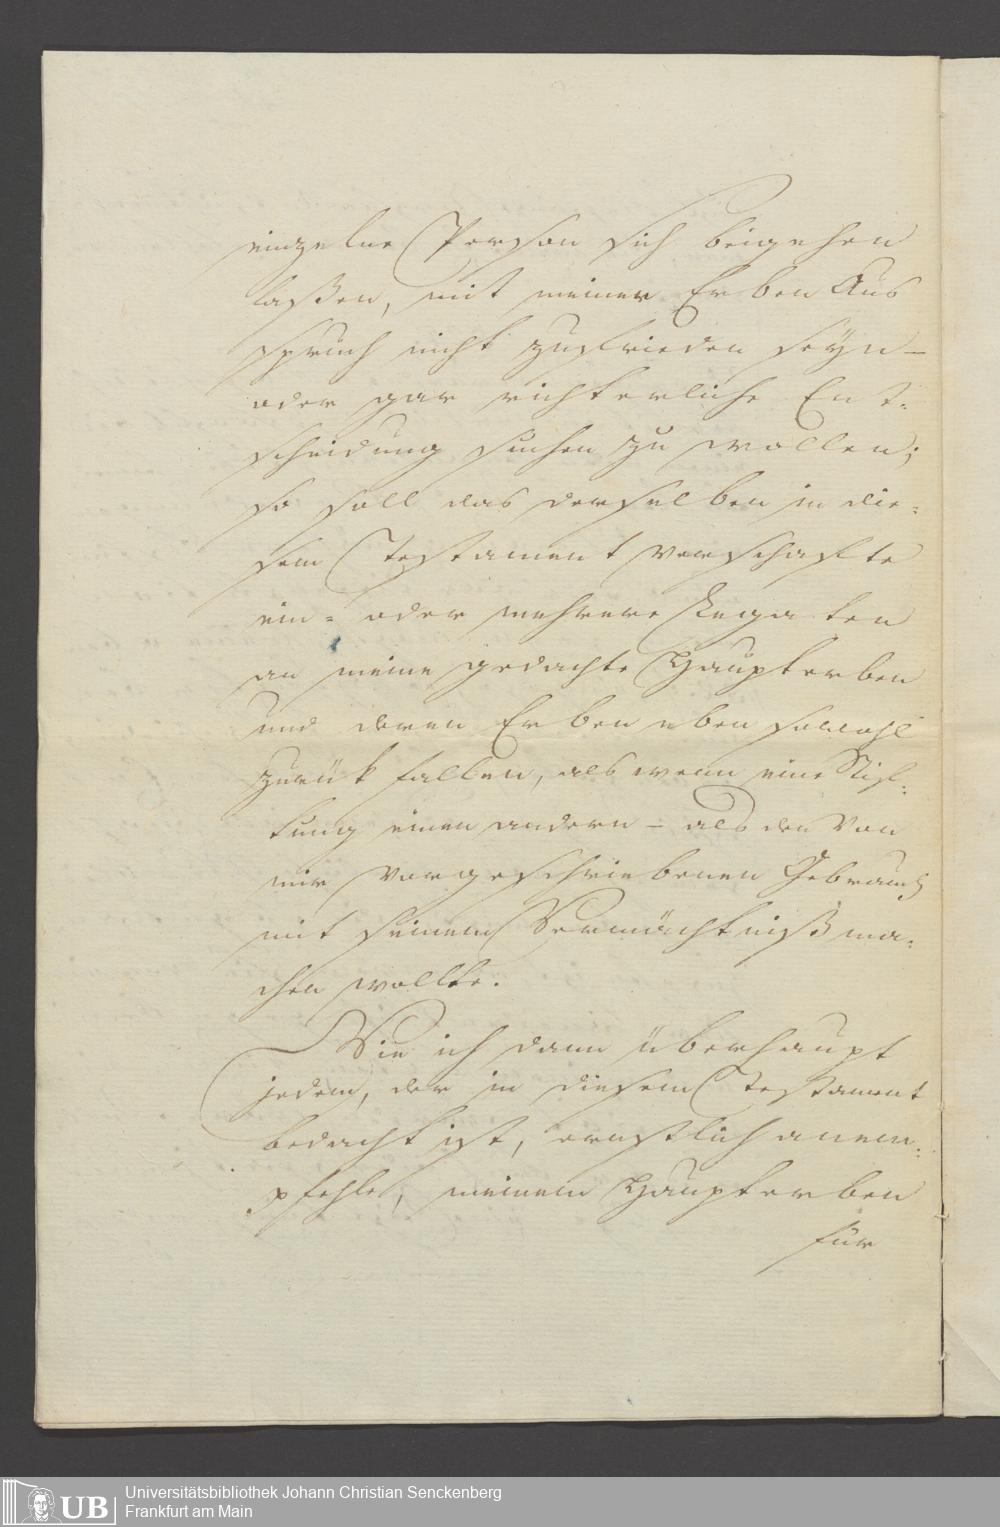 einzelne Person sich beigehen
laßen, mit meiner Erben Aus
spruch nicht zufrieden seÿn –
oder gar richterliche Ent-
scheidung suchen zu wollen;
so soll das derselben in die-
sem Testament verschafte
ein- oder mehrere Legaten
an meine gedachte Haupterben
und deren Erben eben sowohl
zurük fallen, als wenn eine Stif-
tung einen andern – als den von
mir vorgeschriebenen Gebrauch
mit seinem Vermächtniß ma-
chen wollte.
Wie ich dann überhaupt
jedem, der in diesem Testament
bedacht ist, ernstlich anem-
pfehle, meinem Haupterben
für
UB
Universitätsbibliothek Johann Christian Senckenberg
Frankfurt am Main